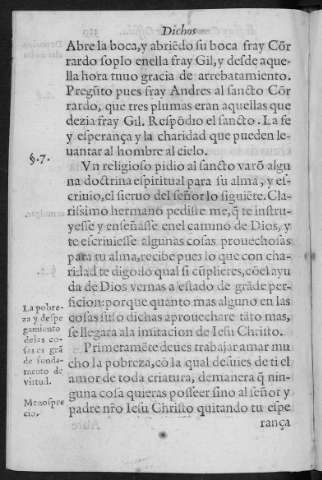 Dichos
Abre la boca, y abriēdo su boca fray Cōr
rardo soplo enella fray Gil, y desde aque-
lla hora tuuo gracia de arrebatamiento.
Pregūto pues fray Andres al sancto Cōr
rardo, que tres plumas eran aquellas que
dezia fray Gil. Respōdio el sancto. La fe
y esperança y la charidad que pueden le-
uantar al hombre al cielo.
§. 7.
Vn religioso pidio al sancto varō algu
na doctrina espiritual para su alma, y es-
criuio, el sieruo del señor lo siguiēte. Cla-
rissimo hermano pediste me, q̄ te instru-
yesse y enseñasse en el camino de Dios, y
te escriuiesse algunas cosas prouechosas
para tu alma, recibe pues lo que con cha-
ridad te digo do qual si cūplieres, cō el ayu
da de Dios vernas a estado de grāde per-
ficion: porque quanto mas alguno en las
cosas suso dichas aprouechare tāto mas,
se llegara ala imitacion de Iesu Christo.
La pobre-
za y despe
gamiento
delas co-
sas es grā
de funda-
mento de
virtud.
Menospre
cio.
Primeramēte deues trabajar amar mu
cho la pobreza, cō la qual desuies de ti el
amor de toda criatura, demanera q̄ nin-
guna cosa quieras posseer sino al señor y
padre nr̄o Iesu Christo quitando tu espe
rança